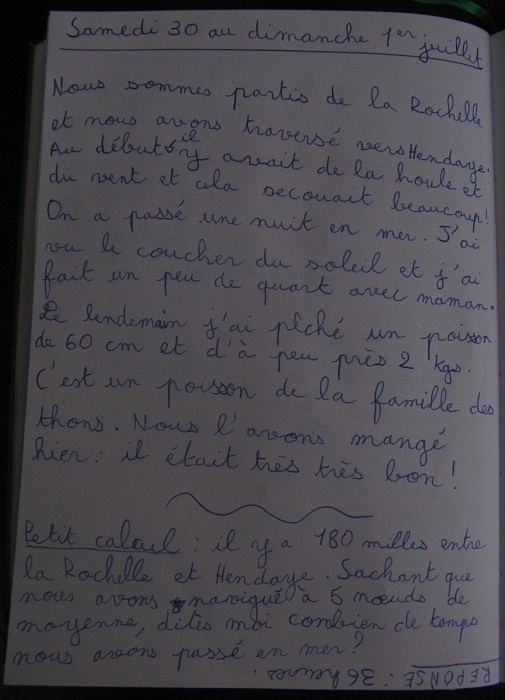 Samedi 30 au dimanche 1er juillet
Nous sommes partis de la Rochelle
et nous avons traversé vers Hendaye.
Au début il y avait de la houle et
du vent et cela secouait beaucoup!
On a passé une nuit en mer. J'ai
vu le coucher du soleil et j'ai
fait un peu de quart avec maman.
Le lendemain j'ai pêché un poisson
de 60 cm et d'à peu près 2 kgs.
C'est un poisson de la famille des
thons. Nous l'avons mangé
hier: il était très très bon!
Petit calcul: il y a 180 milles entre
la Rochelle et Hendaye. Sachant que
nous avons navigué à 5 nœuds de
moyenne, dites moi combien de temps
nous avons passé en mer?
REPONSE: 36 heures.